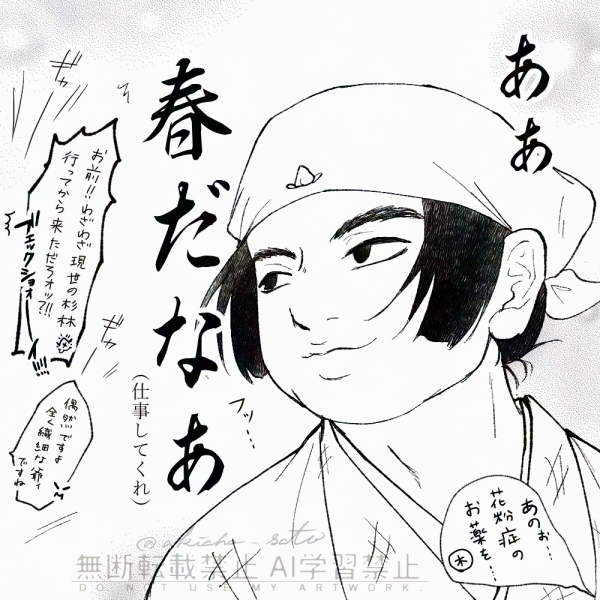 ああ
春だなあ
(仕事してくれ)
フッ…
お前!!わざわざ現世の杉林
行ってから来ただろオッ?!!
ブエックショォ
イ!!!
偶然ですよ
全く繊細な爺ィ
ですね
あのぉ…
花粉症の
お薬を…
@akicha_sato
無断転載禁止 AI学習禁止
DO NOT USE MY ARTWORK.